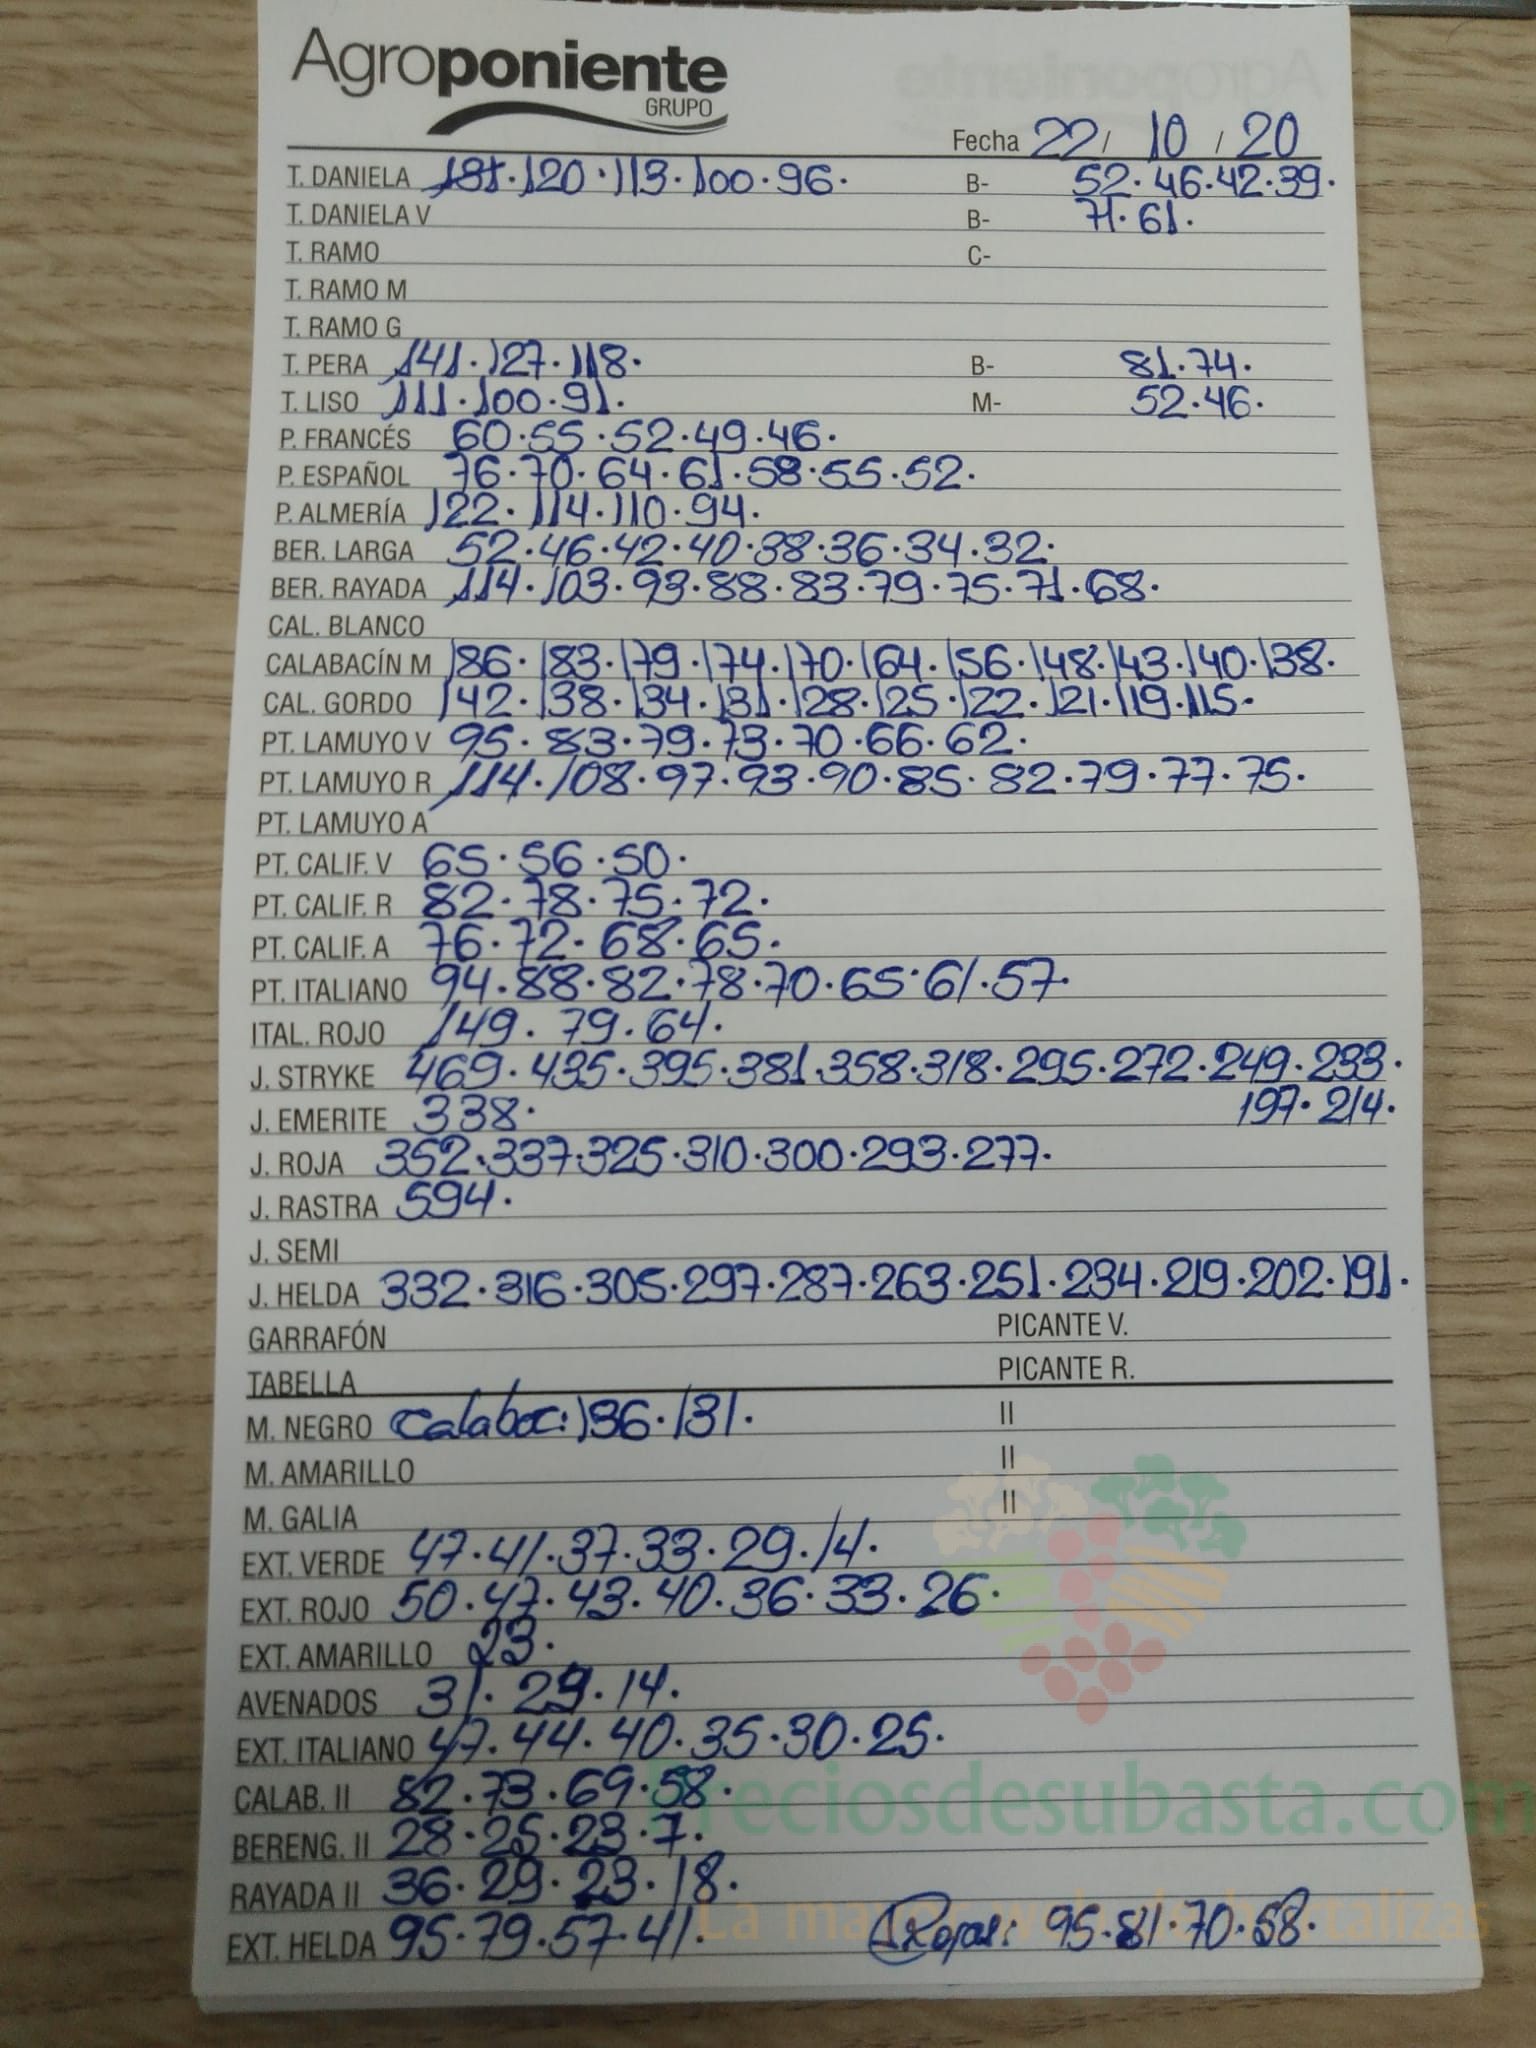 Agroponiente
GRUPO
Fecha 22/ 10 / 20
T. DANIELA 181·120·113·100·96· B- 52·46·42·39·
T. DANIELA V B- 71·61·
T. RAMO C-
T. RAMO M
T. RAMO G
T. PERA 141·127·118· B- 81·74·
T. LISO 111·100·91· M- 52·46·
P. FRANCÉS 60·55·52·49·46·
P. ESPAÑOL 76·70·64·61·58·55·52·
P. ALMERÍA 122·114·110·94·
BER. LARGA 52·46·42·40·38·36·34·32·
BER. RAYADA 114·103·93·88·83·79·75·71·68·
CAL. BLANCO
CALABACÍN M 186·183·179·174·170·164·156·148·143·140·138·
CAL. GORDO 142·138·134·131·128·125·122·121·119·115·
PT. LAMUYO V 95·83·79·73·70·66·62·
PT. LAMUYO R 114·108·97·93·90·85·82·79·77·75·
PT. LAMUYO A
PT. CALIF. V 65·56·50·
PT. CALIF. R 82·78·75·72·
PT. CALIF. A 76·72·68·65·
PT. ITALIANO 94·88·82·78·70·65·61·57·
ITAL. ROJO 149·79·64·
J. STRYKE 469·435·395·381·358·318·295·272·249·233·
J. EMERITE 338· 197·214·
J. ROJA 352·337·325·310·300·293·277·
J. RASTRA 594·
J. SEMI
J. HELDA 332·316·305·297·287·263·251·234·219·202·191·
GARRAFÓN PICANTE V.
TABELLA PICANTE R.
M. NEGRO Calabac: 136·131· II
M. AMARILLO II
M. GALIA II
EXT. VERDE 47·41·37·33·29·14·
EXT. ROJO 50·47·43·40·36·33·26·
EXT. AMARILLO 23·
AVENADOS 31·29·14·
EXT. ITALIANO 47·44·40·35·30·25·
CALAB. II 82·73·69·58·
Preciosdesubasta.com
BERENG. II 28·25·23·7·
RAYADA II 36·29·23·18·
La mayor web de hortalizas
EXT. HELDA 95·79·57·41· Rojas: 95·81·70·58·